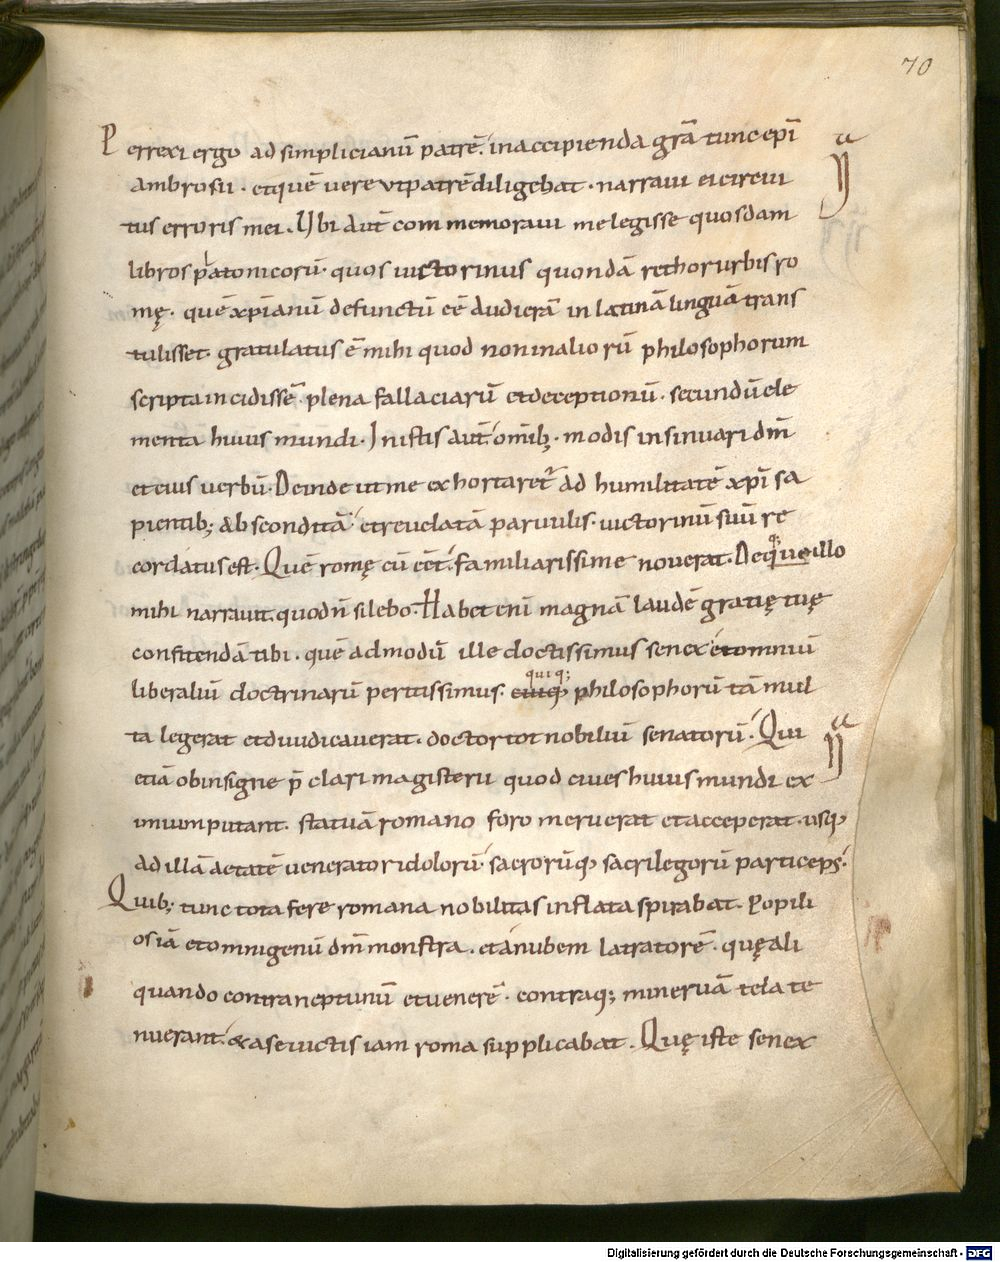 70
Perrexi ergo ad simplicianū patrē. in accipienda grā tunc epī
ambrosii. et quē vere ut patrē diligebat. narravi ei circui
tus erroris mei. Ubi aut̄ commemoravi me legisse quosdam
libros platonicorū. quos victorinus quondā rethor urbis ro
mę. quē xp̄ianū defunctū eē audierā in latinā linguā trans
tulisset. gratulatus ē mihi quod non in aliorū philosophorum
scripta incidissē. plena fallaciarū et deceptionū. secundū ele
menta huius mundi. In istis aut̄ omīb; modis insinuari dm̄
et eius verbū. Deinde ut me exhortaret᷑ ad humilitatē xp̄i sa
pientib; absconditā et revelatā parvulis. victorinū suū re
cordatus est. Quē romę cū eēt. familiarissime noverat. Deq; illo
mihi narravit. quod n̄ silebo. Habet enī magnā laudē gratię tuę
confitendā tibi. quē admodū ille doctissimus senex et omniū
quiq;
liberaliū doctrinarū peritissimus. philosophorū tā mul
ta legerat et diiudicaverat. doctor tot nobiliū senatorū. Qui
etiā ob insigne p̄clari magisterii quod cives huius mundi ex
imium putant. statuā romano foro meruerat et acceperat. usq;
ad illā aetatē venerator idolorū. sacrorūq; sacrilegorū particeps.
Quib; tunc tota fere romana nobilitas inflata spirabat. Popili
osiā et omnigenū dm̄ monstra. et anubem latratorē. quę ali
quando contra neptunū et venerē. contraq; minervā tela te
nuerant. & a se victis iam roma supplicabat. Quę iste senex
Digitalisierung gefördert durch die Deutsche Forschungsgemeinschaft - DFG